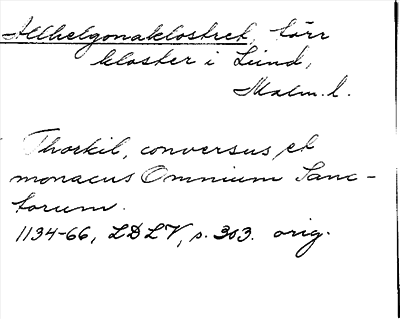 Allhelgonaklostret, körr
kloster i Lund,
Malm. l.
Thorkil, conversus et
monacus Omnium Sanc-
torum.
1134-66, LDLV, s. 303. orig.